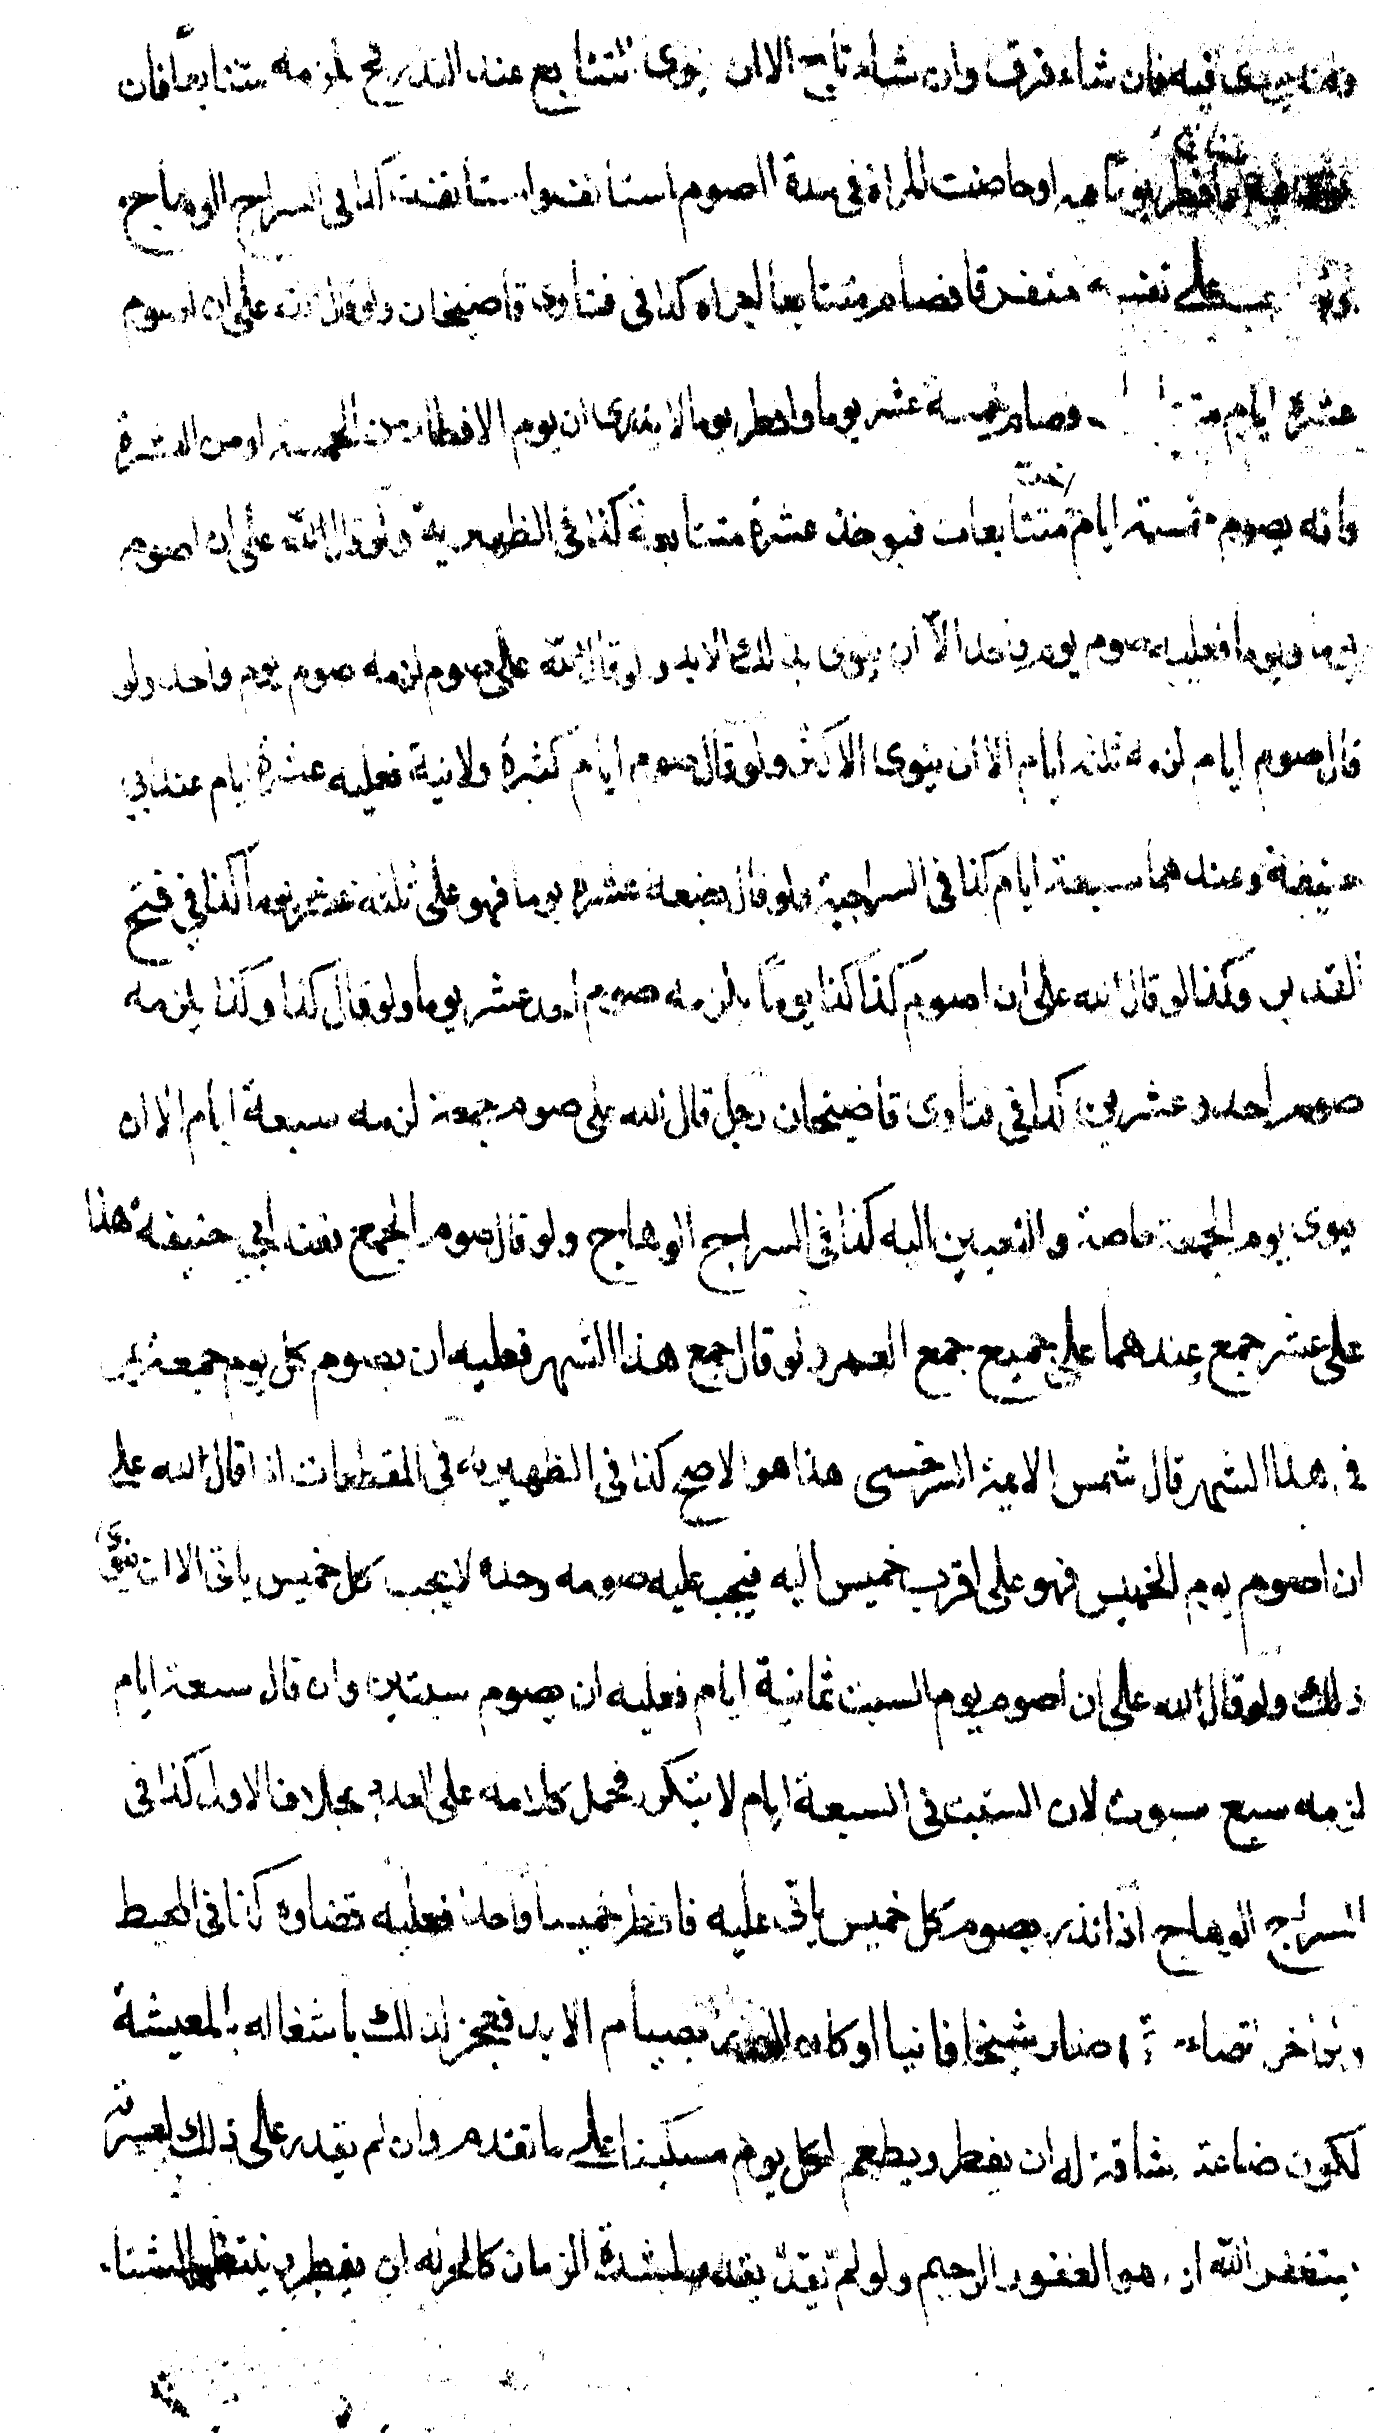 فيه فان شاء فرق وان شاء تابع الا ان ينوى التتابع عند النذر فح يلزمه متتابعا فان
اوحاضت المراة فى مدة الصوم استانف واستانفت كذا فى السراج الوهاج
على نفسه متفرقا فصام متتابعا اجزاه كذا فى فتاوى قاضيخان ولو قال لله على ان اصوم
عشرة ايام فصام خمسة عشر يوما وافطر يوما لا يدرى ان يوم الافطار من الخمسة او من العشرة
فانه يصوم خمسة ايام متتابعات فيوخذ عشرة متتابعة كذا فى الظهيرية ولو قال لله على ان اصوم
يوما ويوما فعليه صوم يوم واحد الا ان ينوى بذلك الابد ولو قال لله على صوم لزمه صوم يوم واحد ولو
قال صوم ايام لزمه ثلثة ايام الا ان ينوى الاكثر ولو قال صوم ايام كثيرة ولا نية فعليه عشرة ايام عند ابى
حنيفة وعندهما سبعة ايام كذا فى السراجية ولو قال بضعة عشرة يوما فهو على ثلثة عشر يوما كذا فى فتح
القدير وكذا لو قال لله على ان اصوم كذا كذا يوما يلزمه صوم احد عشر يوما ولو قال كذا وكذا يلزمه
صوم احد وعشرين كذا فى فتاوى قاضيخان رجل قال لله على صوم جمعة لزمه سبعة ايام الا ان
ينوى يوم الجمعة خاصة والتعيين اليه كذا فى السراج الوهاج ولو قال صوم الجمع فعند ابي حنيفة هذا
على عشر جمع عندهما على جميع جمع العمر ولو قال جمع هذا الشهر فعليه ان يصوم كل يوم جمعة يمر
فى هذا الشهر قال شمس الايمة السرخسى هذا هو الاصح كذا فى الظهيرية فى المقطعات اذا قال لله على
ان اصوم يوم الخميس فهو على اقرب خميس اليه فيجب عليه صومه وحده لا يجب كل خميس ياتى الا ان ينوى
ذلك ولو قال لله على ان اصوم يوم السبت ثمانية ايام فعليه ان يصوم سبتين وان قال سبعة ايام
لزمه سبع سبوت لان السبت فى السبعة ايام لا يتكرر فحمل كلامه على العدد بخلاف الاول كذا فى
السراج الوهاج اذا نذر بصوم كل خميس ياتى عليه فافطر خميسا واحدا فعليه قضاوه كذا فى المحيط
صار شيخا فانيا او كان النذر بصيام الابد فعجز لذلك باشتغاله بالمعيشة
لكون صناعة شاقة له ان يفطر ويطعم لكل يوم مسكينا على ما تقدم وان لم يقدر على ذلك لعسرته
يستغفر الله انه هو الغفور الرحيم ولو لم يقدر لشدة الزمان كالحر له ان يفطر وينتظر الشتاء